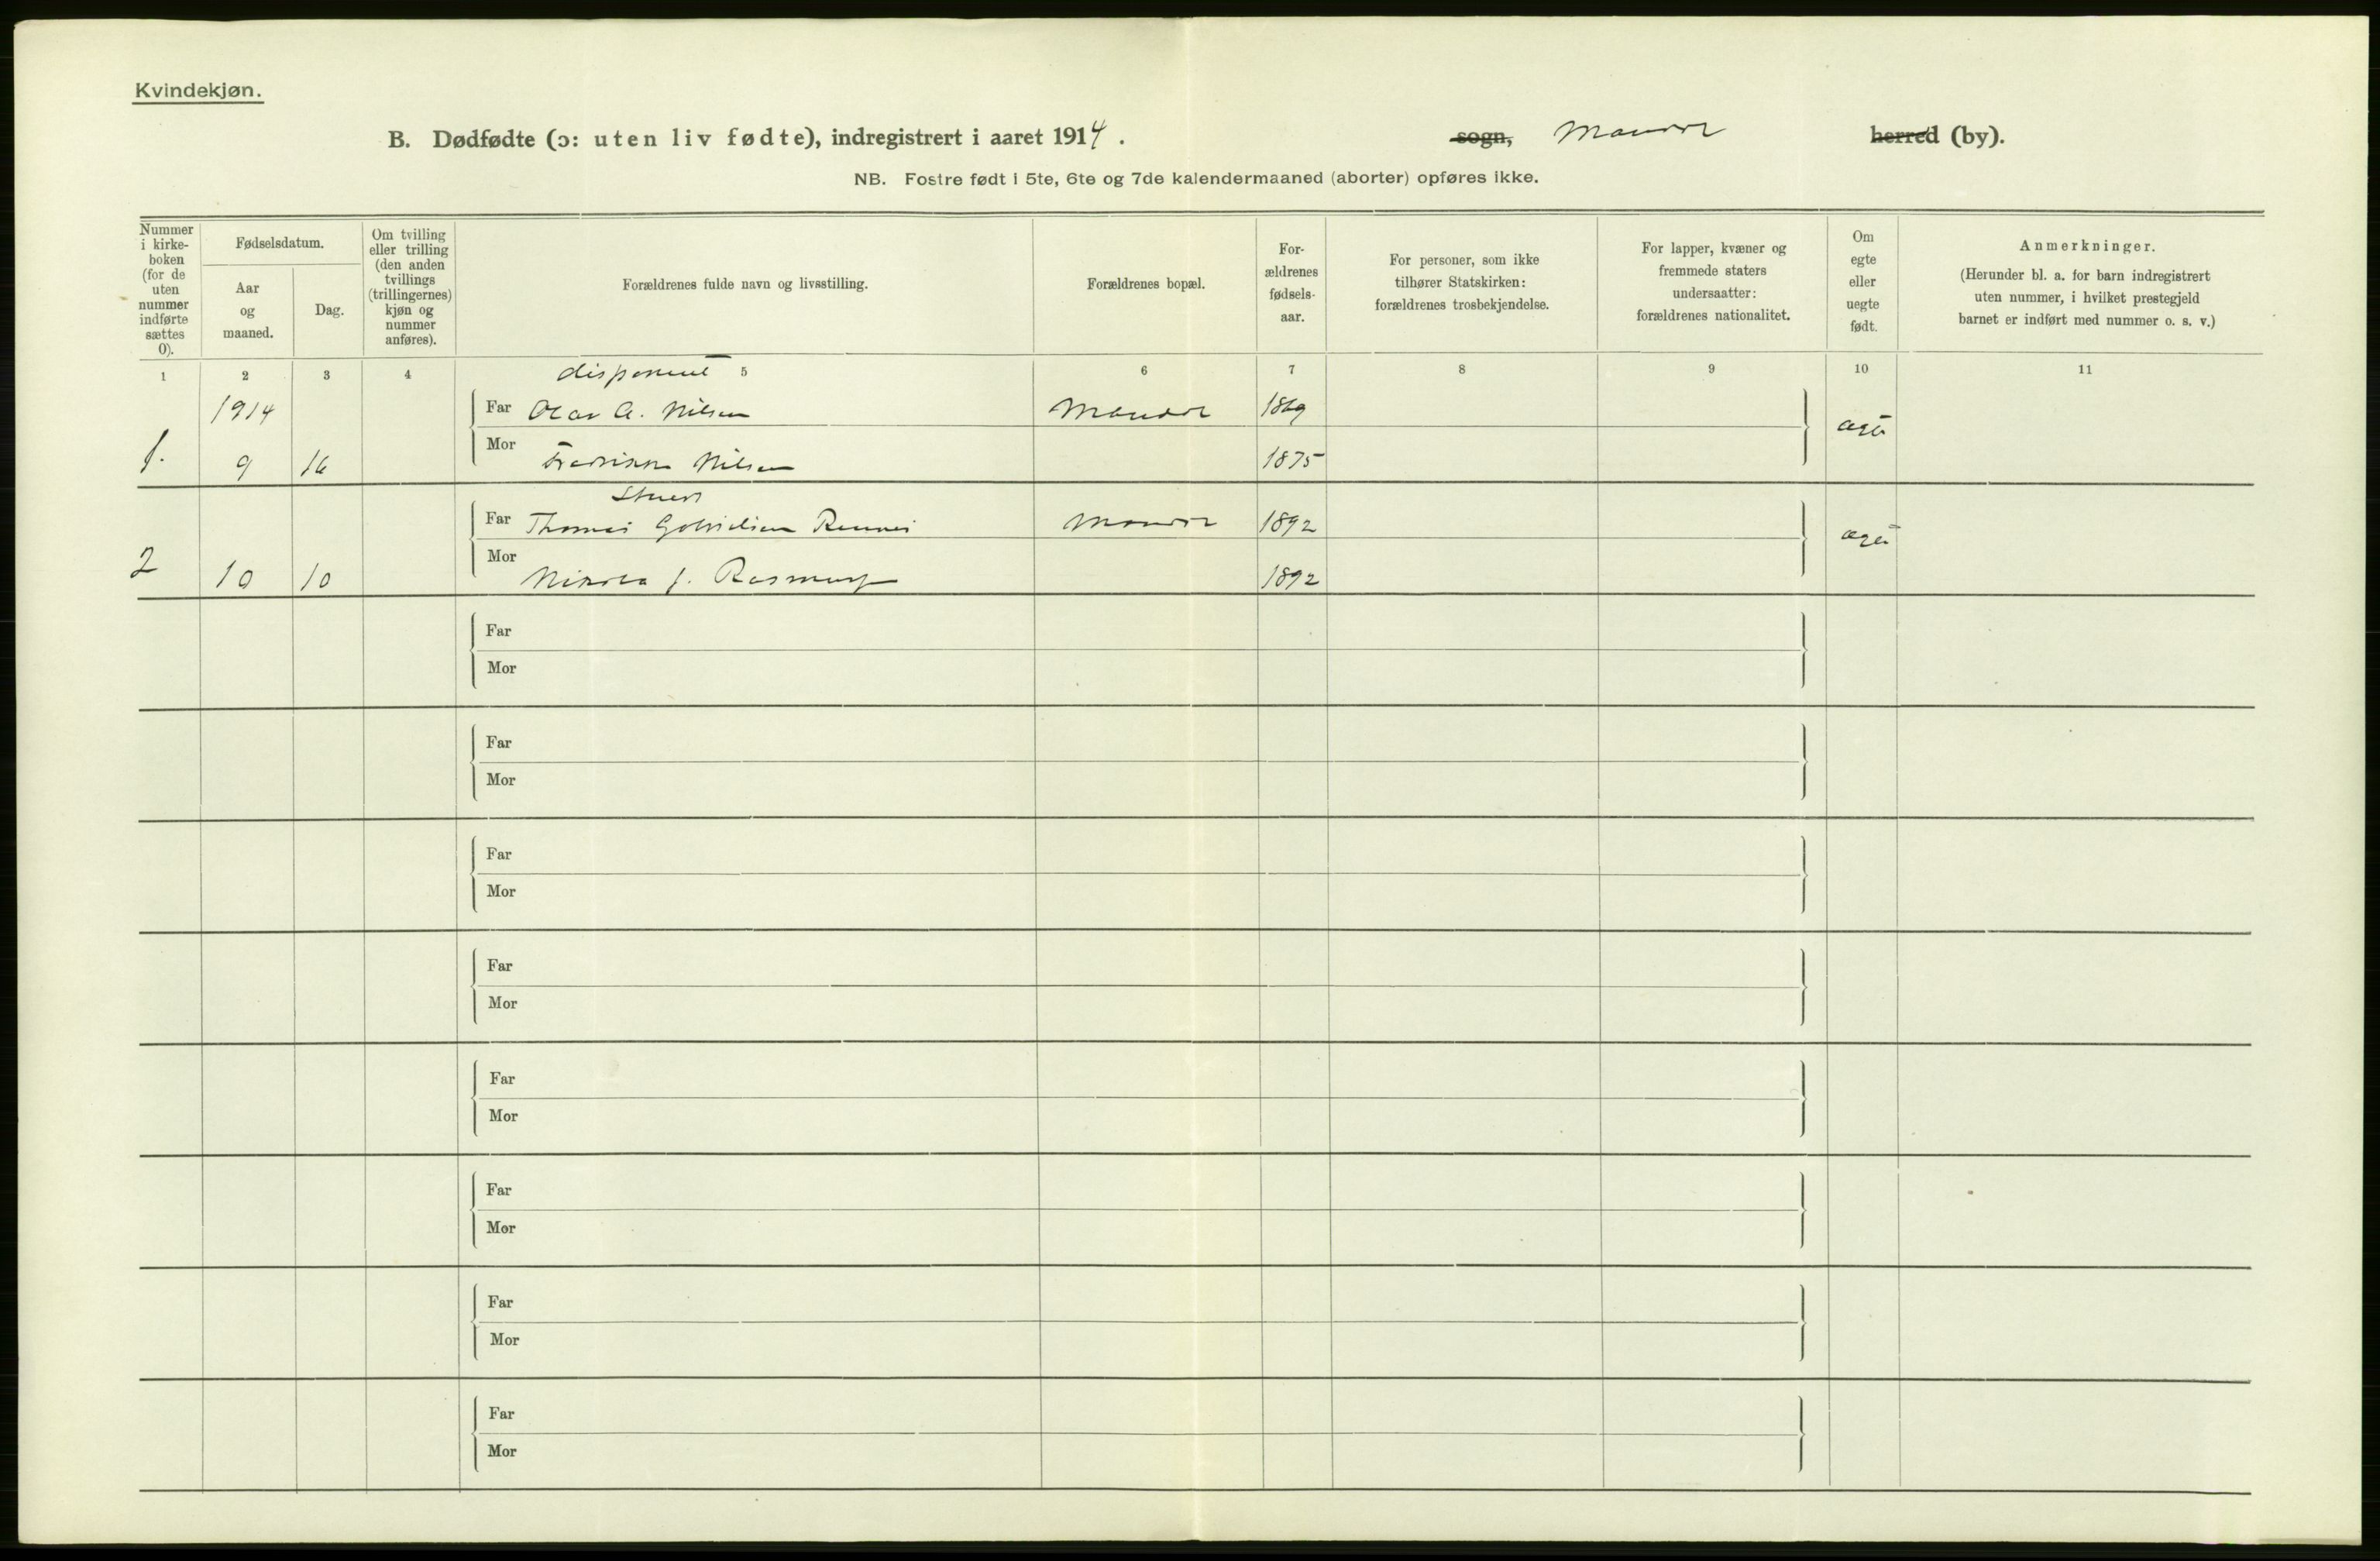 Kvindekjøn.
B. Dødfødte (ɔ: uten liv fødte), indregistrert i aaret 1914. sogn, Mandal herred (by).
NB. Fostre født i 5te, 6te og 7de kalendermaaned (aborter) opføres ikke.
Nummer i kirke-boken (for de uten nummer indførte sættes 0).
Fødselsdatum.
Aar og maaned.
Dag.
Om tvilling eller trilling (den anden tvillings (trillingernes) kjøn og nummer anføres).
Forældrenes fulde navn og livsstilling.
Forældrenes bopæl.
For-ældrenes fødsels-aar.
For personer, som ikke tilhører Statskirken: forældrenes trosbekjendelse.
For lapper, kvæner og fremmede staters undersaatter: forældrenes nationalitet.
Om egte eller uegte født.
Anmerkninger.
(Herunder bl. a. for barn indregistrert uten nummer, i hvilket prestegjeld barnet er indført med nummer o. s. v.)
1 2 3 4 5 6 7 8 9 10 11
disponent
1914 Far Olav A. Nilsen Mandal 1869 ægte
1. 9 16 Mor Fredrikke Nilsen 1875
Stuert
Far Thomas Mandal 1892 ægte
2 10 10 Mor J. Rasmussen 1892
Far
Mor
Far
Mor
Far
Mor
Far
Mor
Far
Mor
Far
Mor
Far
Mor
Far
Mor